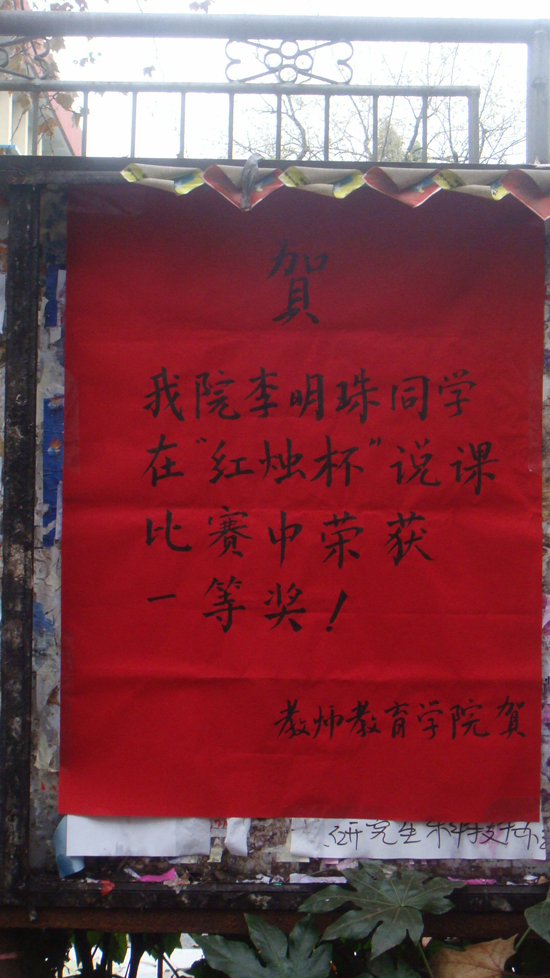 賀
我院李明珠同学
在"红烛杯"说课
比赛中荣获
一等奖!
教师教育学院賀
研究生科技